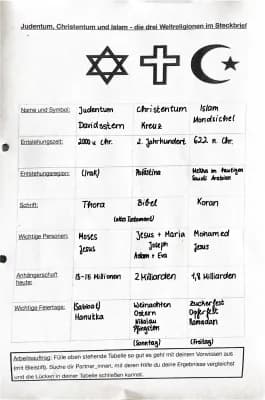 Judentum, Christentum und Islam - die drei Weltreligionen im Steckbrief
Name und Symbol: Judentum Christentum Islam
Davidsstern Kreuz Mondsichel
Entstehungszeit: 2000 v. Chr. 2. Jahrhundert 622 n. Chr.
Entstehungsregion: (Irak) Palästina Mekka im heutigen
Saudi Arabien
Schrift: Thora Bibel Koran
(Altes Testament)
Wichtige Personen: Moses Jesus + Maria Mohamed
Jesus Joseph Jesus
Adam + Eva
Anhängerschaft heute: 13-15 Millionen 2 Milliarden 1,8 Milliarden
Wichtige Feiertage: (Sabbat) Weihnachten Zuckerfest
Hanukka Ostern Opferfest
Nikolau Ramadan
Pfingsten
(Sonntag) (Freitag)
Arbeitsauftrag: Fülle oben stehende Tabelle so gut es geht mit deinem Vorwissen aus
(mit Bleistift). Suche dir Partner_innen, mit deren Hilfe du deine Ergebnisse vergleichst
und die Lücken in deiner Tabelle schließen kannst.